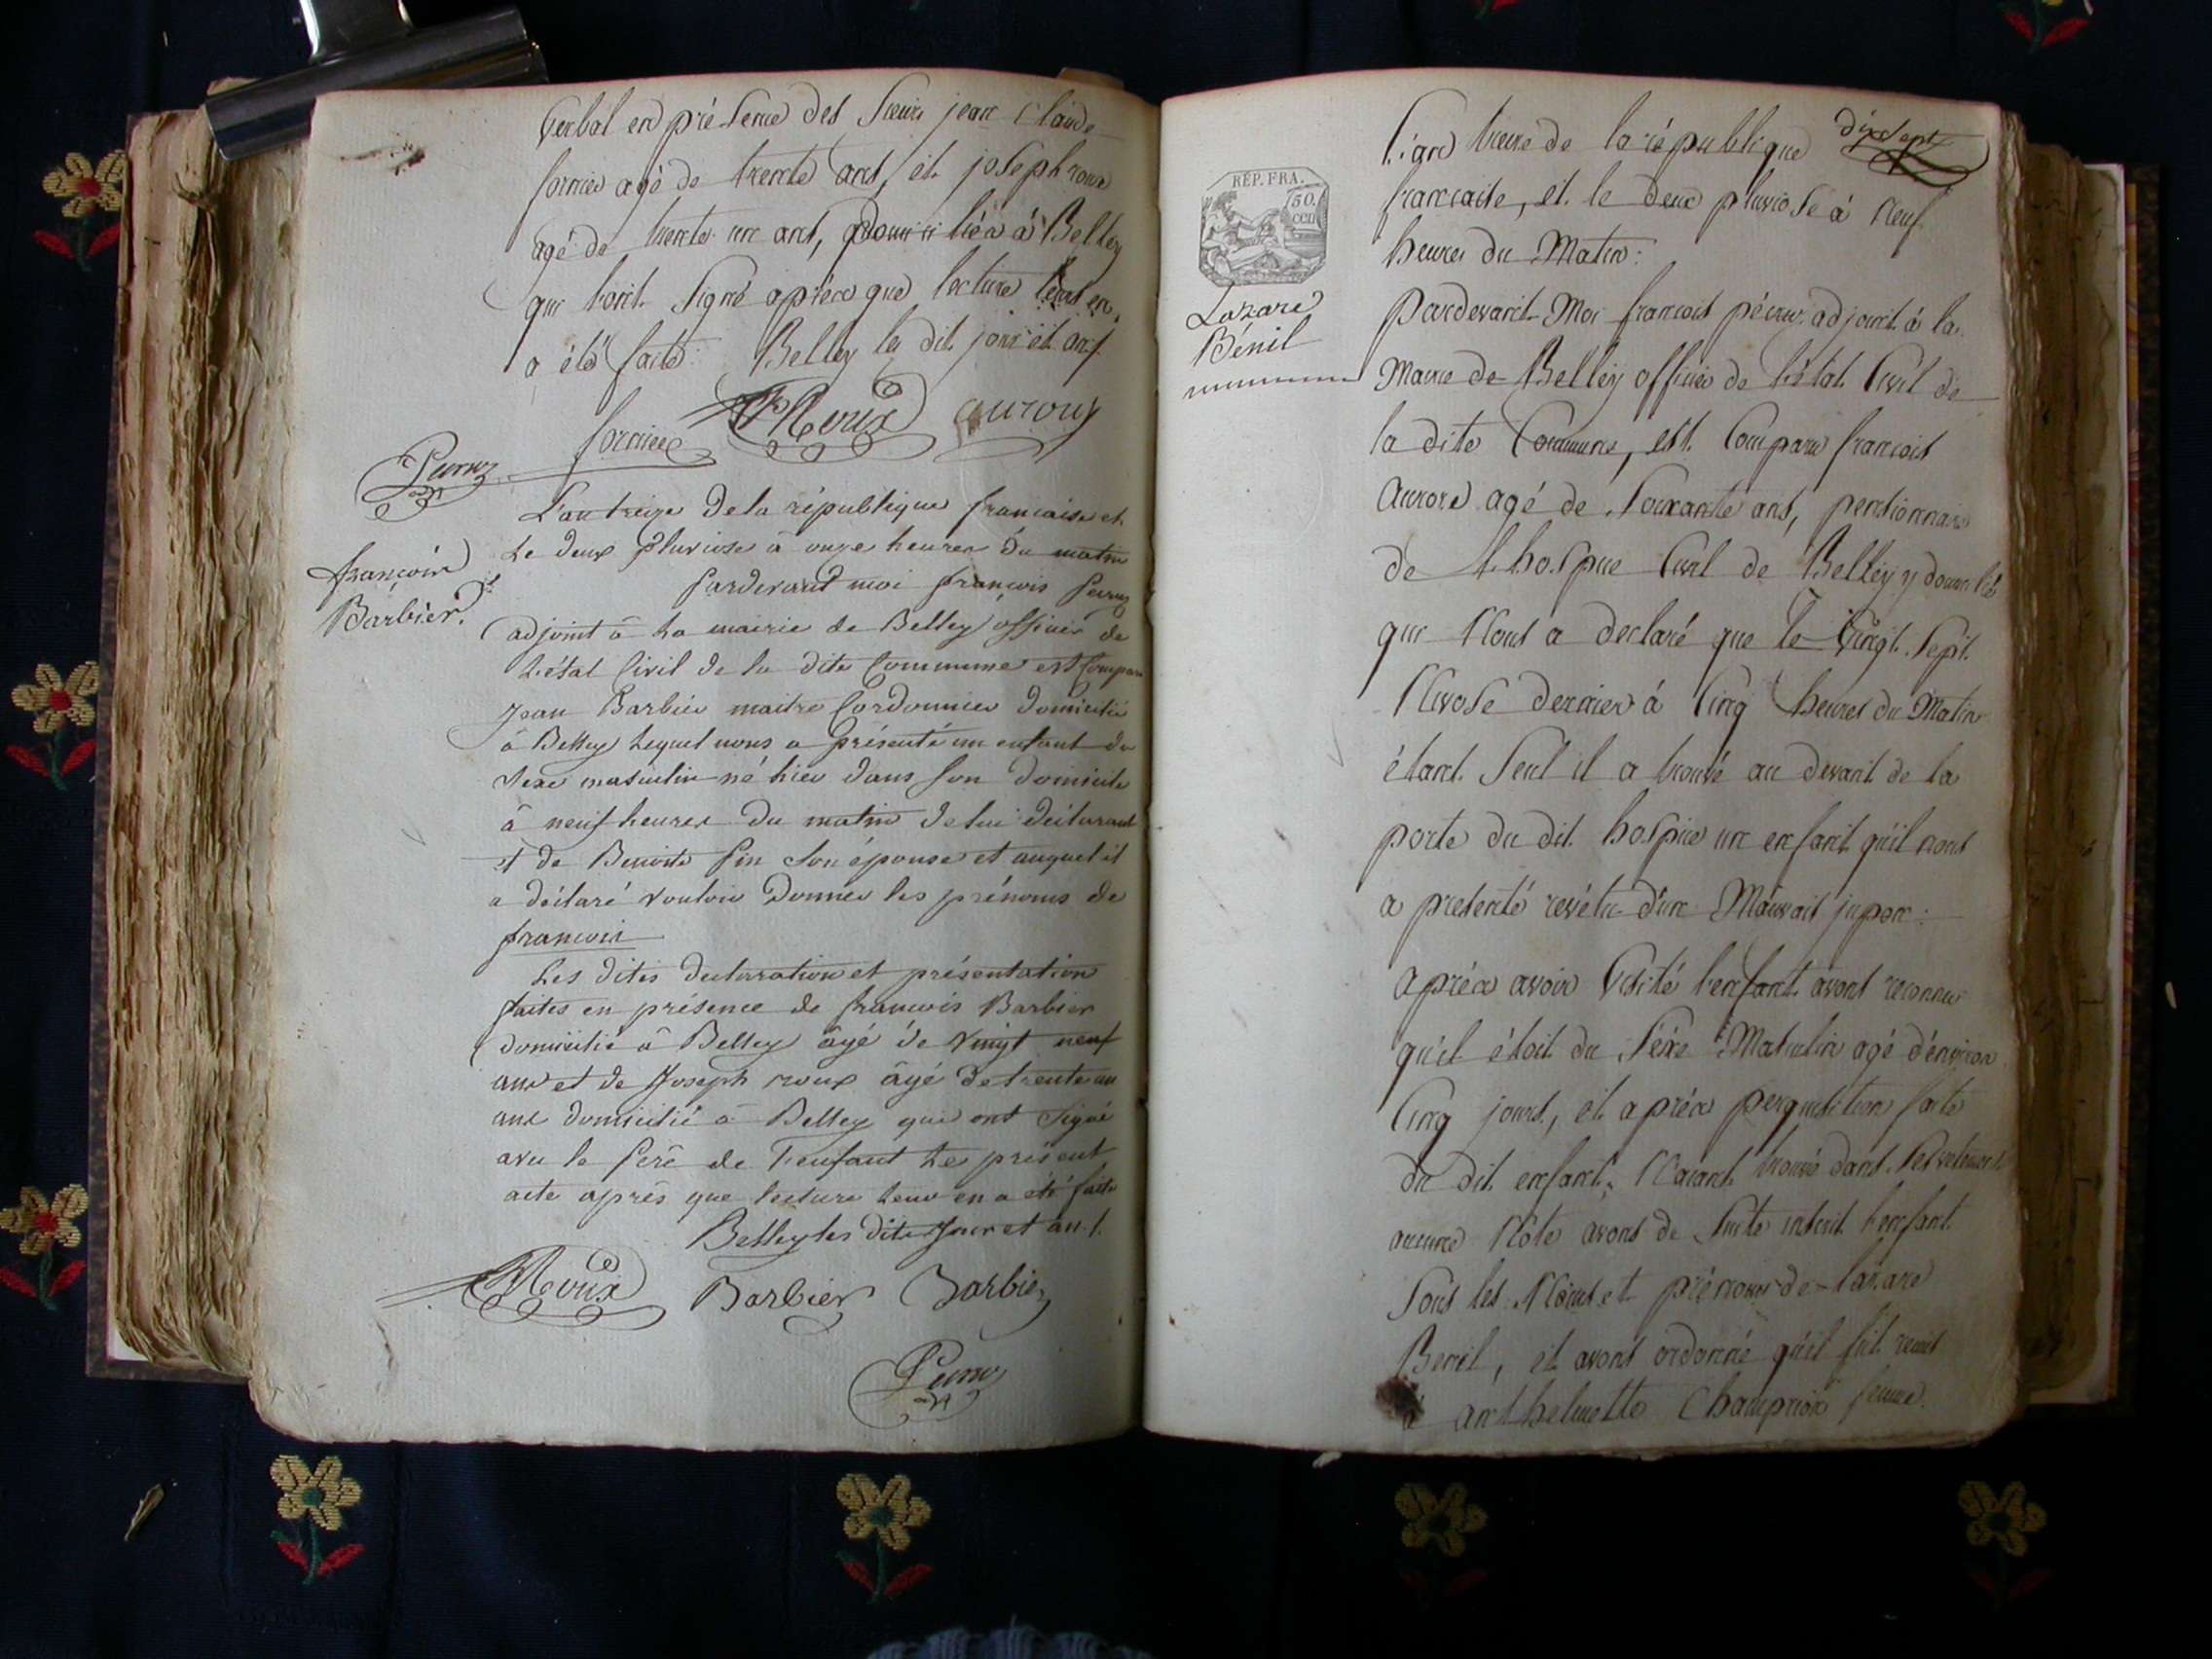 Verbal en présence des sieurs jean Claude
fornier agé de trente ans, et joseph roux
agé de trente un ans, domiciliés à Belley
qui ont signé après que lecture leur en
a été faite. Belley les dit jour et an.
Roux aurore
fornier
Peruz
L'an treize de la république francaise et
Le deux Pluviose à onze heures du matin
françois
Barbier.
Pardevant moi françois Peruz
adjoint à La mairie de Belley officier de
L'état Civil de la dite Commune est Comparu
Jean Barbier maitre Cordonnier domicilié
à Belley Lequel nous a présenté un enfant du
Sexe masculin né hier dans son domicile
à neuf heures du matin de lui déclarant
et de Benoite fin son épouse et auquel il
a déclaré vouloir donner les prénoms de
francois
Les dites declaration et présentation
faites en présence de francois Barbier
domicilié à Belley âgé de vingt neuf
ans et de Joseph roux âgé de trente un
ans domicilié à Belley qui ont signé
avec le Père de l'enfant Le présent
acte après que lecture leur en a été faite
Belley les dits Jour et an.
Roux Barbier Barbier
Peruz
dix sept
L'an treize de la république
francaise, et le deux pluviose à Neuf
heures du Matin:
RÉP. FRA.
50.
CEN
Lazare
Bénil
Pardevant Moi francois péruz adjoint à la
Mairie de Belley officier de l'état Civil de
la dite Commune, est Comparu francois
Aurore agé de Soixante ans, pensionnaire
de L'hospice Civil de Belley y domicilié
qui Nous a declaré que le Vingt Sept
Nivose dernier à Cinq heures du Matin
étant Seul il a trouvé au devant de la
porte du dit hospice un enfant qu'il nous
a presenté revétu d'un Mauvais jupon:
après avoir Visité l'enfant avons reconnu
qu'il étoit du Séxe Masculin agé d'environ
Cinq jours, et après perquisition faite
du dit enfant, N'aiant trouvé dans Ses vetements
aucune Note avons de Suite inscrit l'enfant
Sous les Noms et prénoms de Lazare
Benil, et avons ordonné qu'il fut remis
à anthelmette Champrion femme